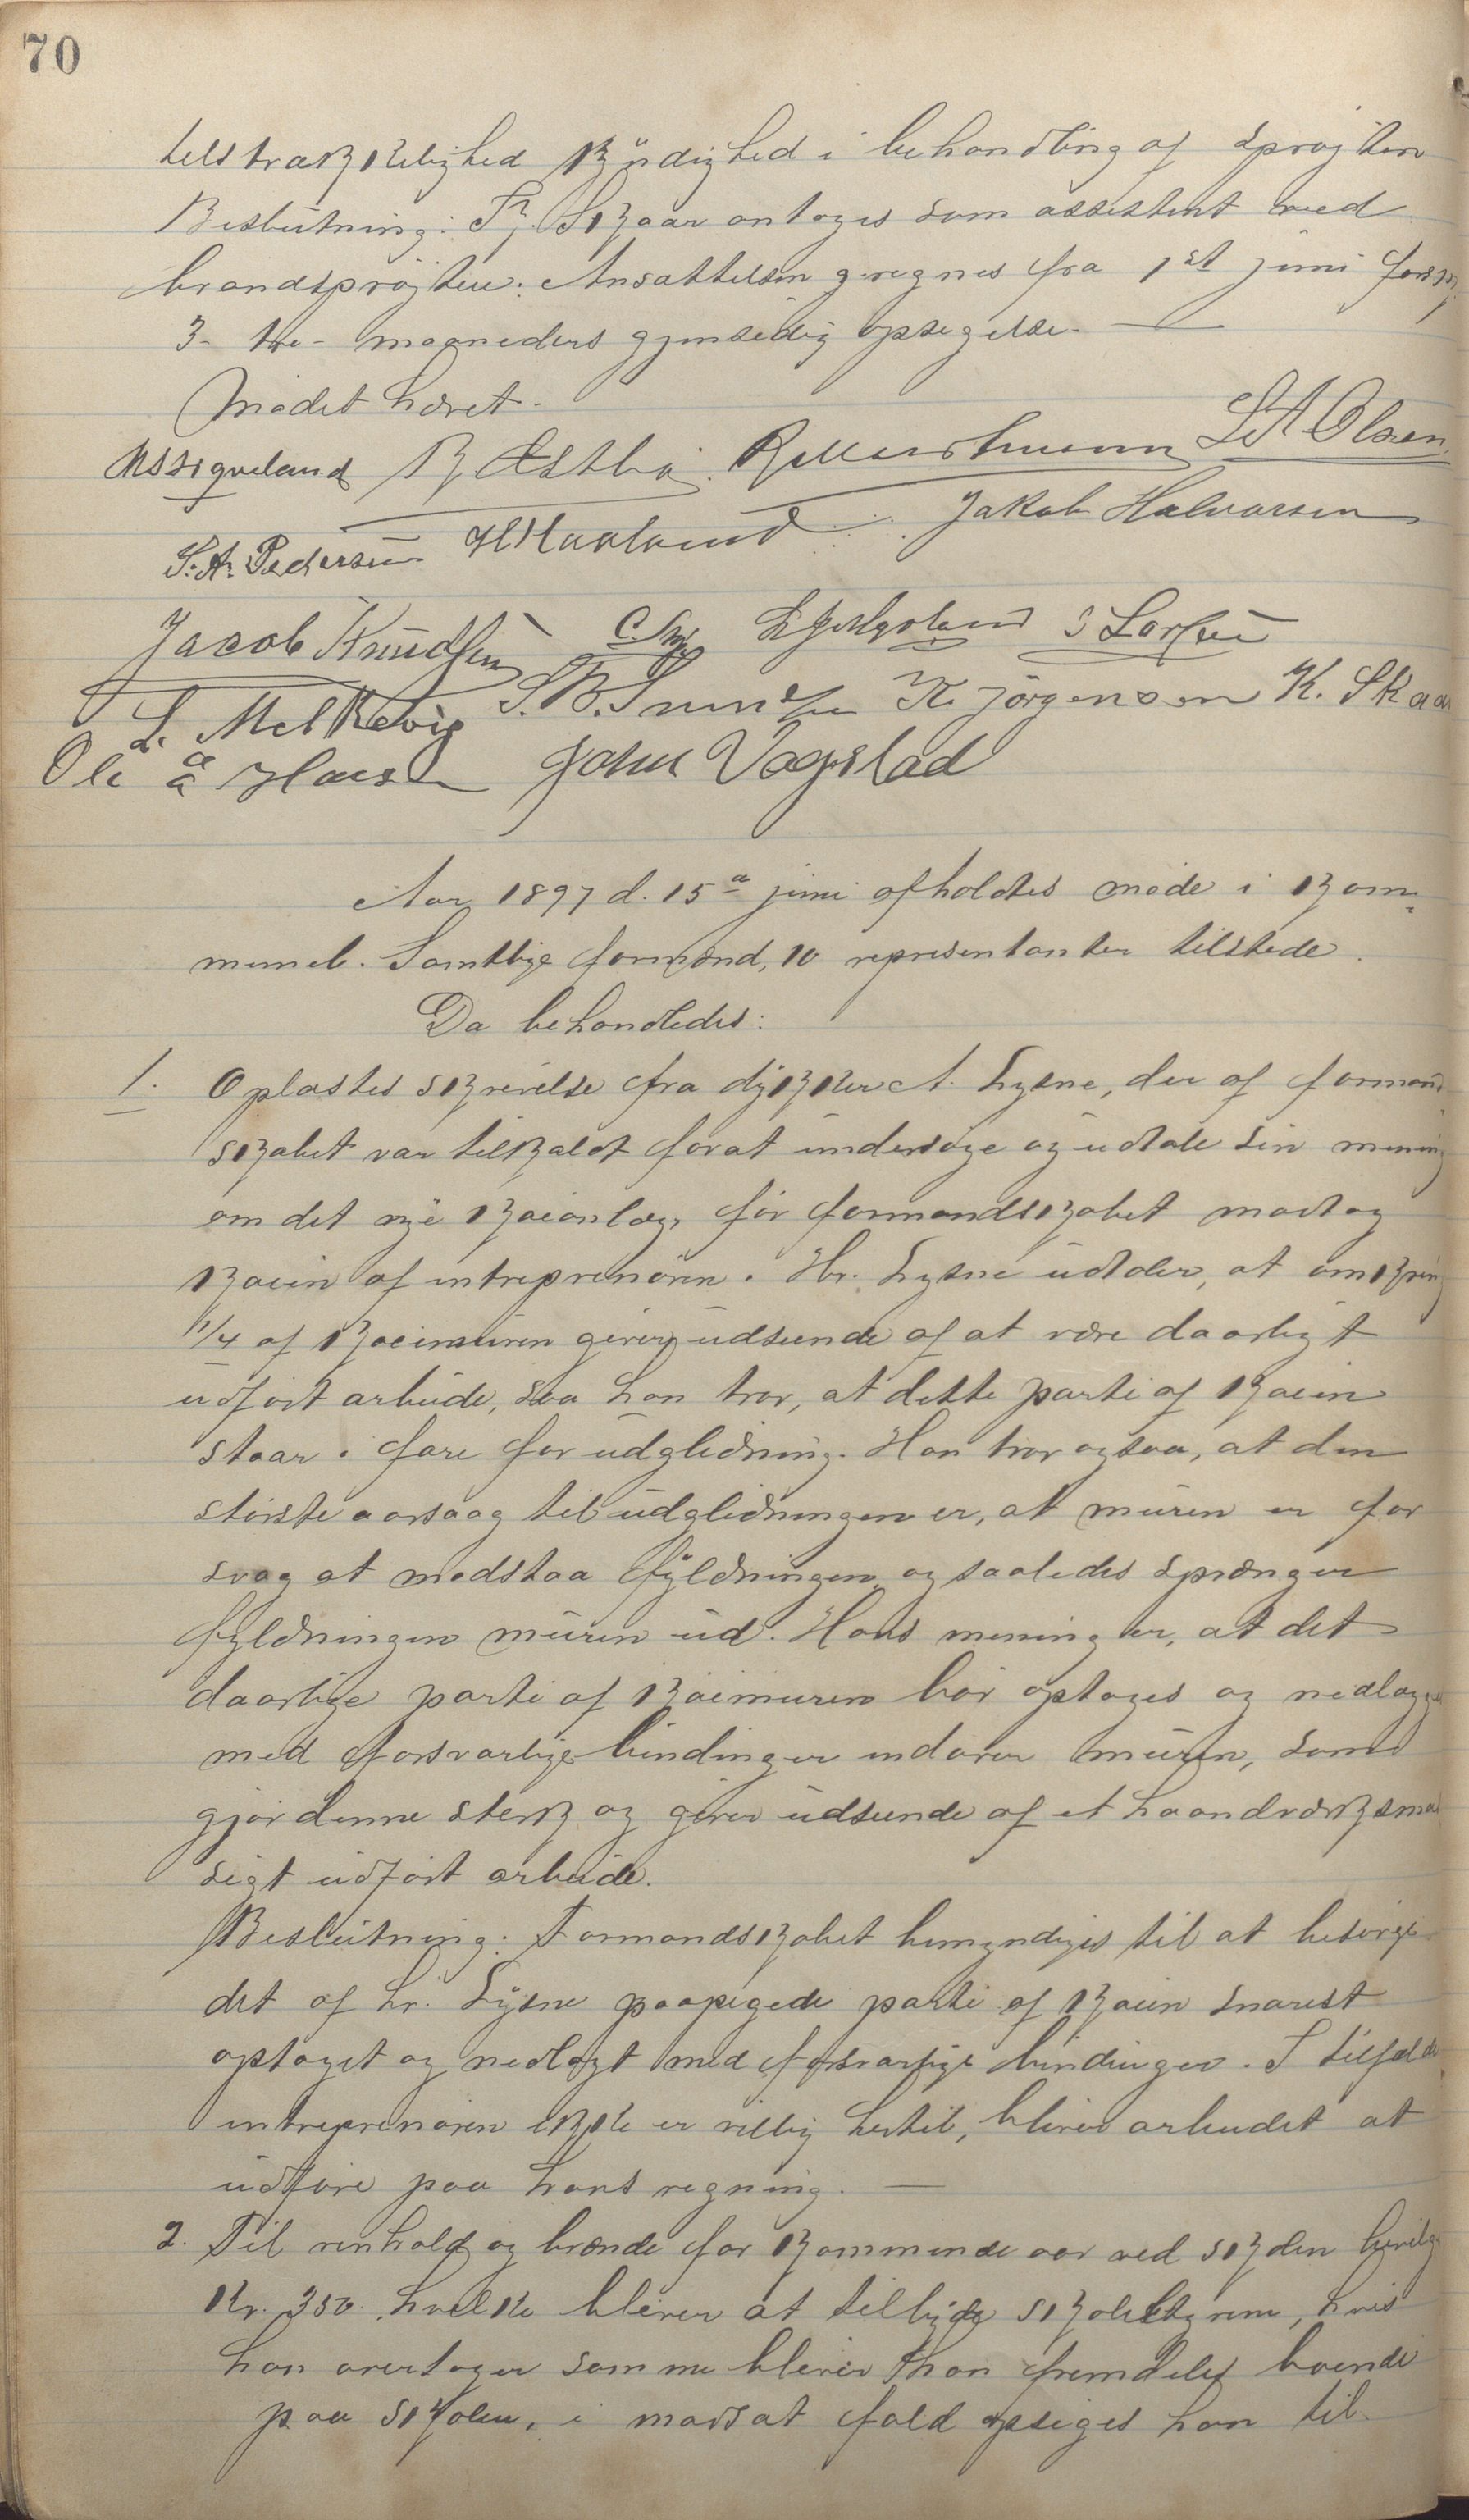 70
tilstrækkelighed kyndighed i behandling af sprøiten
Beslutning: K. Skaar antages som assistent ved
brandsprøiten. Ansættelsen gjeregnes fra 1st juni
3 - tre - maaneders gjensidig opsigelse. —
Mødet hævet.
K Østbø L A Olsen
S. A. Pedersen H Haaland Jakob Halvorsen
Jacob Knudsen S Larsen
L. Melkevig K Jørgensen K. Skaar
Ole John Vagstad
Aar 1897 d. 15de juni afholdtes møde i kom-
muneb. Samtlige formænd, 10 representanter tilstede.
Da behandledes:
1. Oplæstes skrivelse fra dykker A. Lysne, der af formand
skabet var tilkaldt forat undersøge og udtale sin mening
om det nye kaianlæg, før formandskabet modtog
kaien af entreprenøren. Hr. Lysne udtaler, at omkring
1/4 af kaiemuren giver udseende af at være daarligt
udført arbeide, saa han tror, at dette parti af kaien
staar i fare for udglidning. Han tror ogsaa, at den
største aarsag til udglidningen er, at muren er for
svag at modstaa fyldningen og saaledes sprænger
fyldningen muren ud. Hans mening er, at det
daarlige parti af kaimuren bør optages og nedlægges
med forsvarlige bindinger indover muren, som
gjør denne sterk og giver udseende af et haandverksmæs
sigt udført arbeide.
Beslutning: Formandskabet bemyndiges til at besørge
det af hr. Lysne paapegede parti af kaien snarest
optaget og nedlagt med forsvarlige bindinger. I tilfælde
entreprenøren ikke er villig hertil, bliver arbeidet at
udføre paa hans regning. —
2. Til renhold og brænde for kommende aar ved skolen bevilg
Kr. 350. hvilke bliver at tilbyde skolebestyreren, hvis
han overtager samme bliver han fremdeles boende
paa skolen, i modsat fald opsiges han til